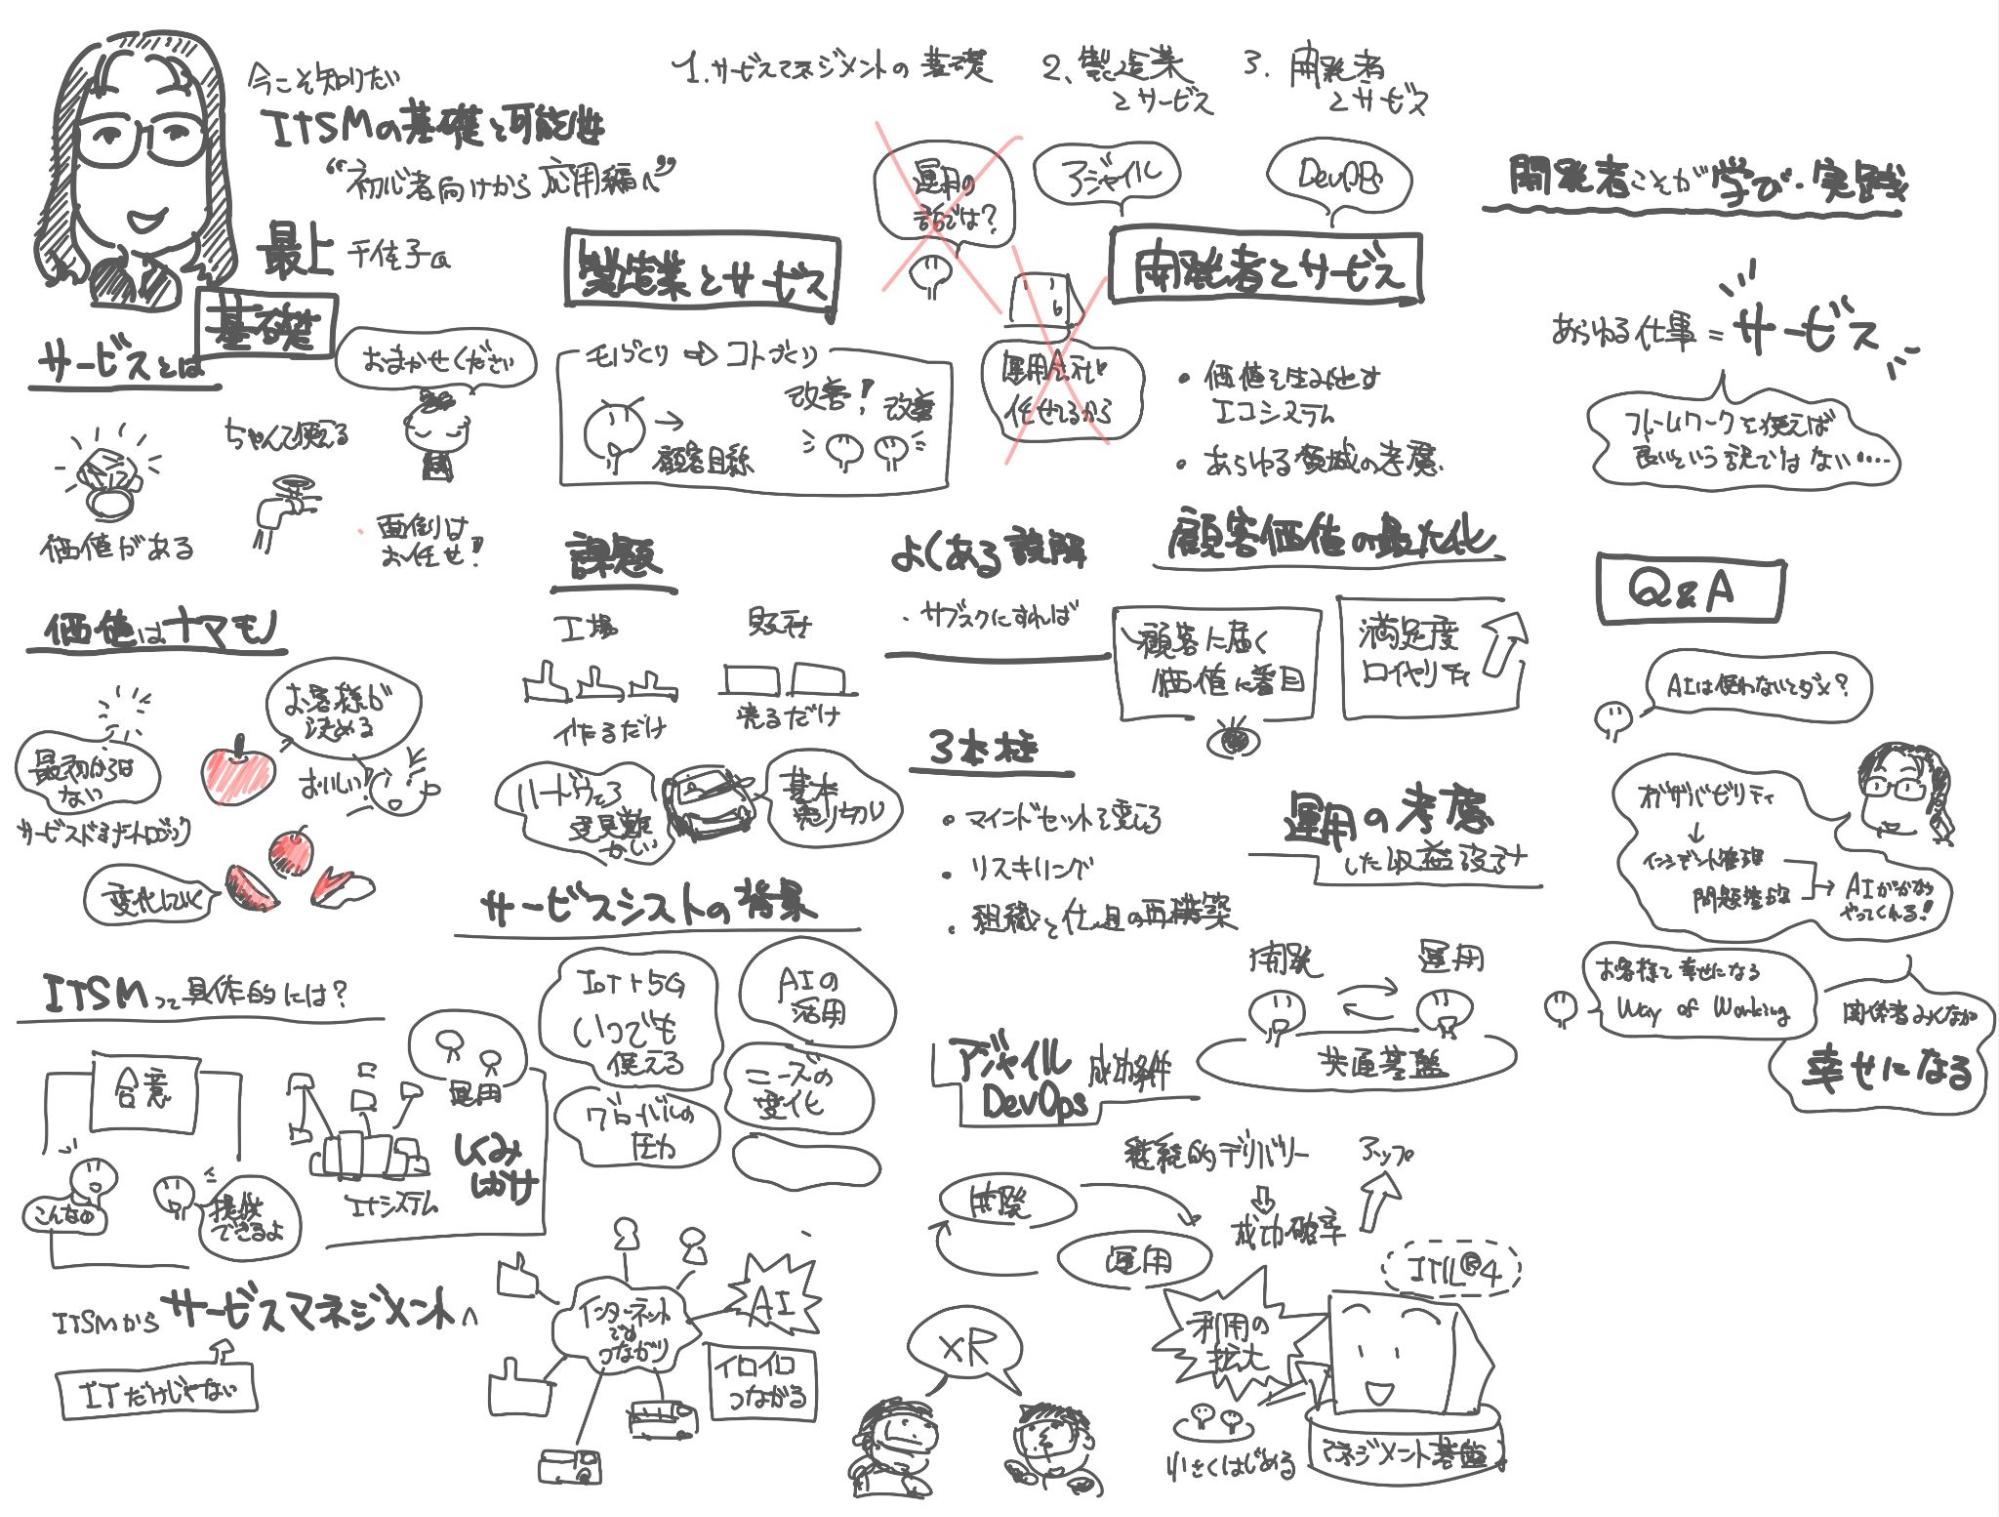 今こそ知りたい
ITSMの基礎と可能性
"初心者向けから応用編へ"
最上 千佳子さん
1. サービスマネジメントの基礎
2. 製造業
とサービス
3. 開発者
とサービス
基礎
サービスとは
おまかせください
ちゃんと使える
価値がある
面倒は
お任せ!
価値はナマモノ
最初からは
ない
お客様が
決める
おいしい!
サービスドミナントロジック
変化していく
ITSMって具体的には?
合意
こんなの
提供
できるよ
運用
しくみ
しかけ
ITシステム
ITSMからサービスマネジメントへ
ITだけじゃない
製造業とサービス
モノづくり ⇨ コトづくり
顧客目線
改善! 改善
課題
工場
作るだけ
販社
売るだけ
基本
売り切り
サービスシフトの背景
IoT+5G
いつでも
使える
AIの
活用
グローバルの
圧力
ニーズの
変化
インターネット
でも
つながり
AI
イロイロ
つながる
運用の
話では?
アジャイル
DevOps
開発者とサービス
任せてるから
・価値を生み出す
エコシステム
・あらゆる領域の考慮
よくある誤解
・サブスクにすれば
3本柱
・マインドセットを変える
・リスキリング
・組織と仕組の再構築
顧客価値の最大化
顧客に届く
価値に着目
満足度
ロイヤリティ
運用の考慮
した収益設計
開発
運用
共通基盤
アジャイル
DevOps
成功条件
開発
運用
継続的デリバリー
成功確率
アップ
xR
利用の
拡大
小さくはじめる
ITIL®4
マネジメント基盤
開発者こそが学び・実践
あらゆる仕事=サービス
フレームワークを使えば
良いという訳ではない....
Q&A
AIは使わないとダメ?
オブザバビリティ
インシデント管理
問題管理
AIがかなり
やってくれる!
お客様と幸せになる
Way of Working
関係者みんなが
幸せになる